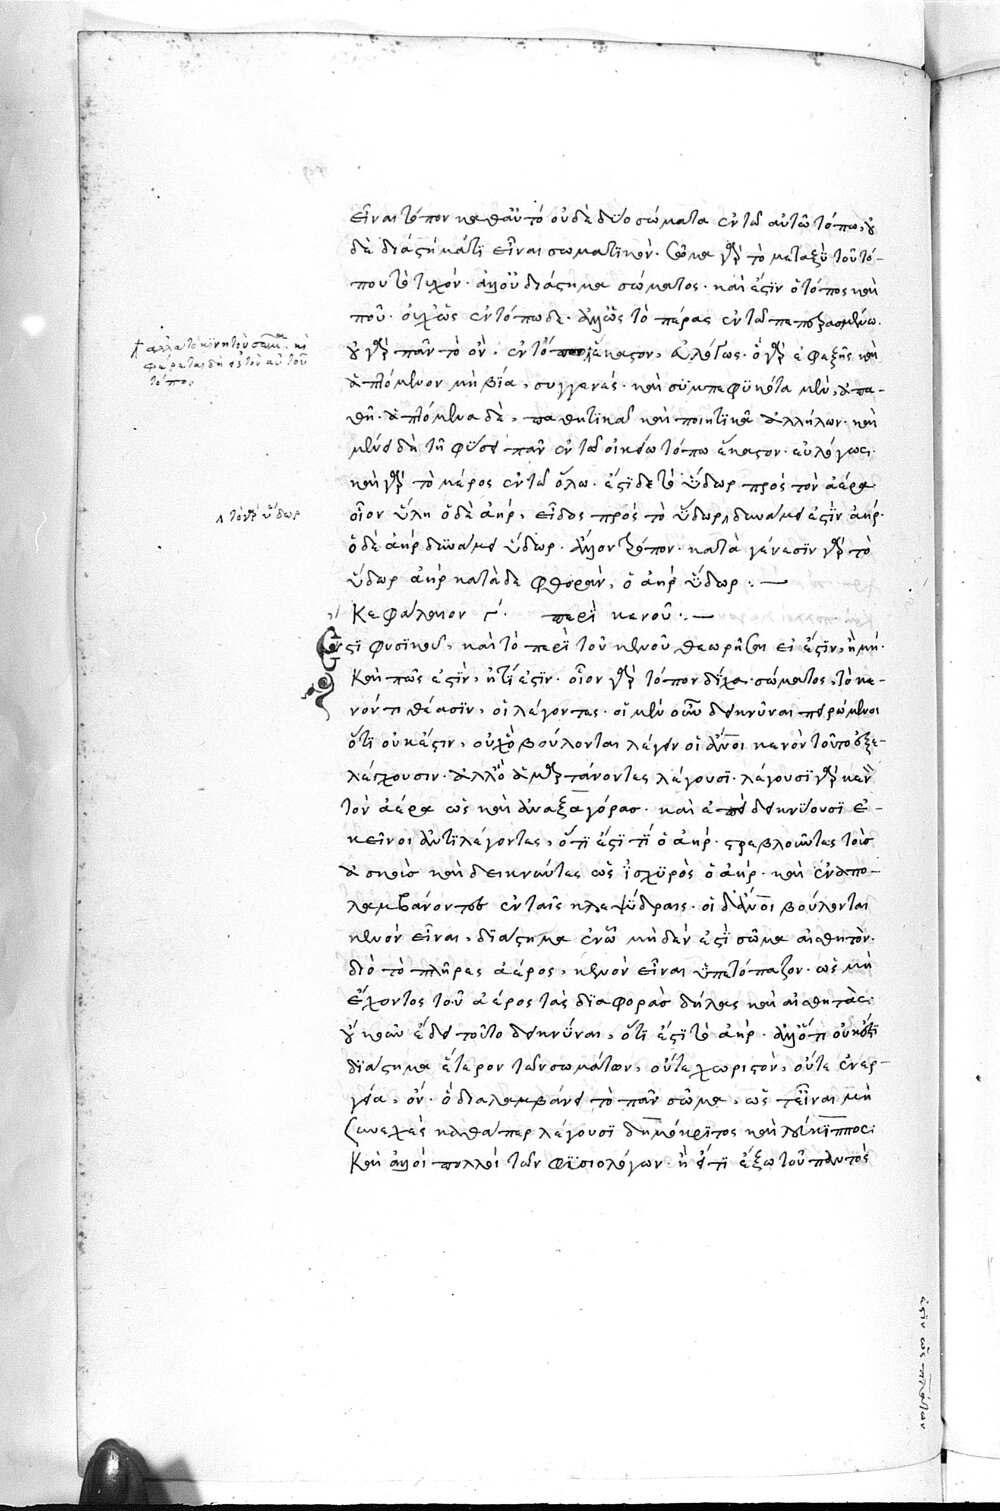 εἶναι τόπον καθ' αὑτό οὐδὲ δύο σώματα ἐν τῶ αὐτῶ τόπω, οὐ
δὲ διάστημά τι εἶναι σωματικόν. σῶμα γὰρ τὸ μεταξὺ τοῦ τό-
που τὸ τυχόν. ἀλλ' οὐ διάστημα σώματος. καὶ ἔστιν ὁ τόπος καὶ
ποῦ. οὐχ ὡς ἐν τόπω δὲ. ἀλλ' ὡς τὸ πέρας ἐν τῶ πεπερασμένω.
οὐ γὰρ πᾶν τὸ ὂν. ἐν τό ἕκαστον, εὐλόγως. ὃ γὰρ ἐφεξῆς καὶ
ἁπτόμενον μὴ βία, συγγενές. καὶ συμπεφυκότα μὲν, ἀπα-
θῆ. ἁπτόμενα δὲ, παθητικὰ καὶ ποιητικὰ ἀλλήλων. καὶ
μένει δὴ τῆ φύσει πᾶν ἐν τῶ οἰκείω τόπω ἕκαστον. εὐλόγως.
καὶ γὰρ τὸ μέρος ἐν τῶ ὅλω. ἔστι δὲ τὸ ὕδωρ πρὸς τὸν ἀέρα
οἷον ὕλη ὁ δὲ ἀὴρ, εἶδος πρὸς τὸ ὕδωρ δυνάμει ἐστὶν ἀήρ.
ὁ δὲ ἀὴρ δυνάμει ὕδωρ. ἄλλον τρόπον. κατὰ γένεσιν γὰρ τὸ
ὕδωρ ἀὴρ κατὰ δὲ φθορὰν, ὁ ἀὴρ ὕδωρ :—
Κεφάλαιον γ'. περὶ κενοῦ :—
Ἔστι φυσικοῦ, καὶ τὸ περὶ τοῦ κενοῦ θεωρῆσαι εἰ ἔστιν, ἢ μή.
καὶ πῶς ἐστὶν, ἢ τί ἐστιν. οἷον γὰρ τόπον δίχα σώματος, τὸ κε-
νόν τιθέασιν, οἱ λέγοντες. οἱ μὲν οὖν δεικνῦναι πειρώμενοι
ὅτι οὐκ ἔστιν, οὐχ ὃ βούλονται λέγειν οἱ ἄνοι κενὸν τοῦτο ἐξε-
λέγχουσιν. ἀλλ' ὃ ἁμαρτάνοντες λέγουσι. λέγουσι γὰρ κενὸν
τὸν ἀέρα ὡς καὶ ἀναξαγόρας. καὶ ἐπιδεικνύουσι ἐ-
κεῖνοι ἀντιλέγοντες, ὅτι ἐστί τι ὁ ἀήρ. στρεβλοῦντες τοὺσ
ἀσκοὺσ καὶ δεικνύντες ὡς ἰσχυρὸς ὁ ἀήρ. καὶ ἐναπο-
λαμβάνοντες ἐν ταῖς κλεψύδραις. οἱ δὲ ἄνοι βούλονται
κενὸν εἶναι, διάστημα ἐν ὧ μηδέν ἐστι σῶμα αἰσθητόν.
διὸ τὸ πλῆρες ἀέρος, κενὸν εἶναι ὑπετόπαζον. ὡς μὴ
ἔχοντος τοῦ ἀέρος τὰς διαφορὰσ δήλας καὶ αἰσθητάς.
οὔκουν ἔδει τοῦτο δεικνῦναι, ὅτι ἐστὶ τὸ ἀήρ. ἀλλ' ὅτι οὐκ ἔστι
διάστημα ἕτερον τῶν σωμάτων, οὔτε χωριστὸν, οὔτε ἐνερ-
γεία, ὂν. ὃ διαλαμβάνει τὸ πᾶν σῶμα, ὥστε εἶναι μὴ
συνεχὲς καθάπερ λέγουσι δημόκριτος καὶ λεύκιππος.
καὶ ἄλλοι πολλοὶ τῶν φυσιολόγων. ἢ εἴ τι ἔξω τοῦ παντὸς
ἀλλὰ τὸ κινητὸν σῶμα. καὶ
φέρεται δὴ εἰς τὸν αὑτοῦ
τόπον
τὸ γὰρ ὕδωρ